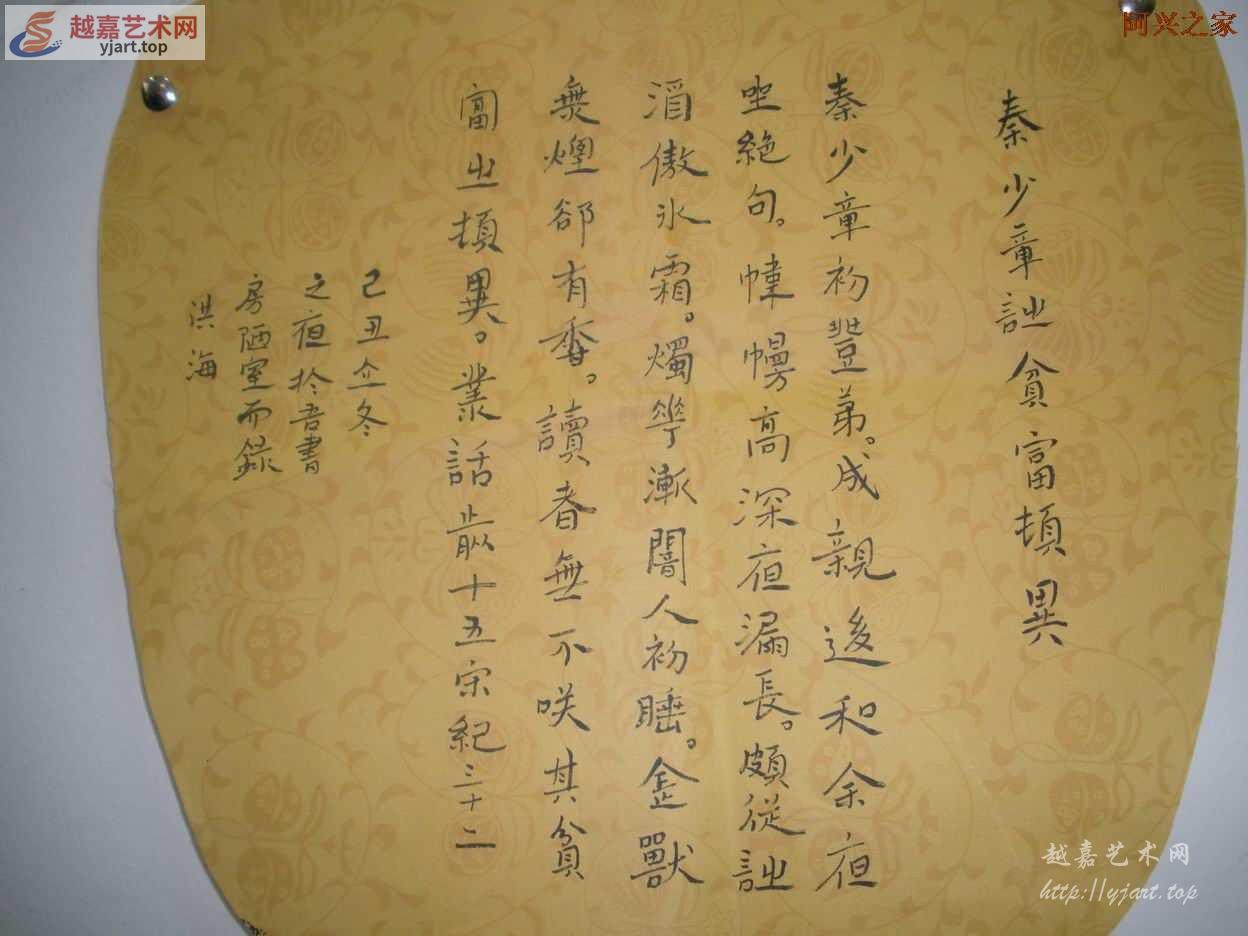 越嘉艺术网
yjart.top
阿兴之家
秦少章詩貧富頓異
秦少章初登第。成親後和余夜
坐絕句。幃幔高深夜漏長。頗從詩
酒傲氷霜。燭華漸闇人初睡。金獸
無煙卻有香。讀者無不咲其貧
富㞢頓異。叢話前十五宋紀三十二
己丑立冬
之夜於吾書
房陋室而録
洪海
越嘉艺术网
http://yjart.top